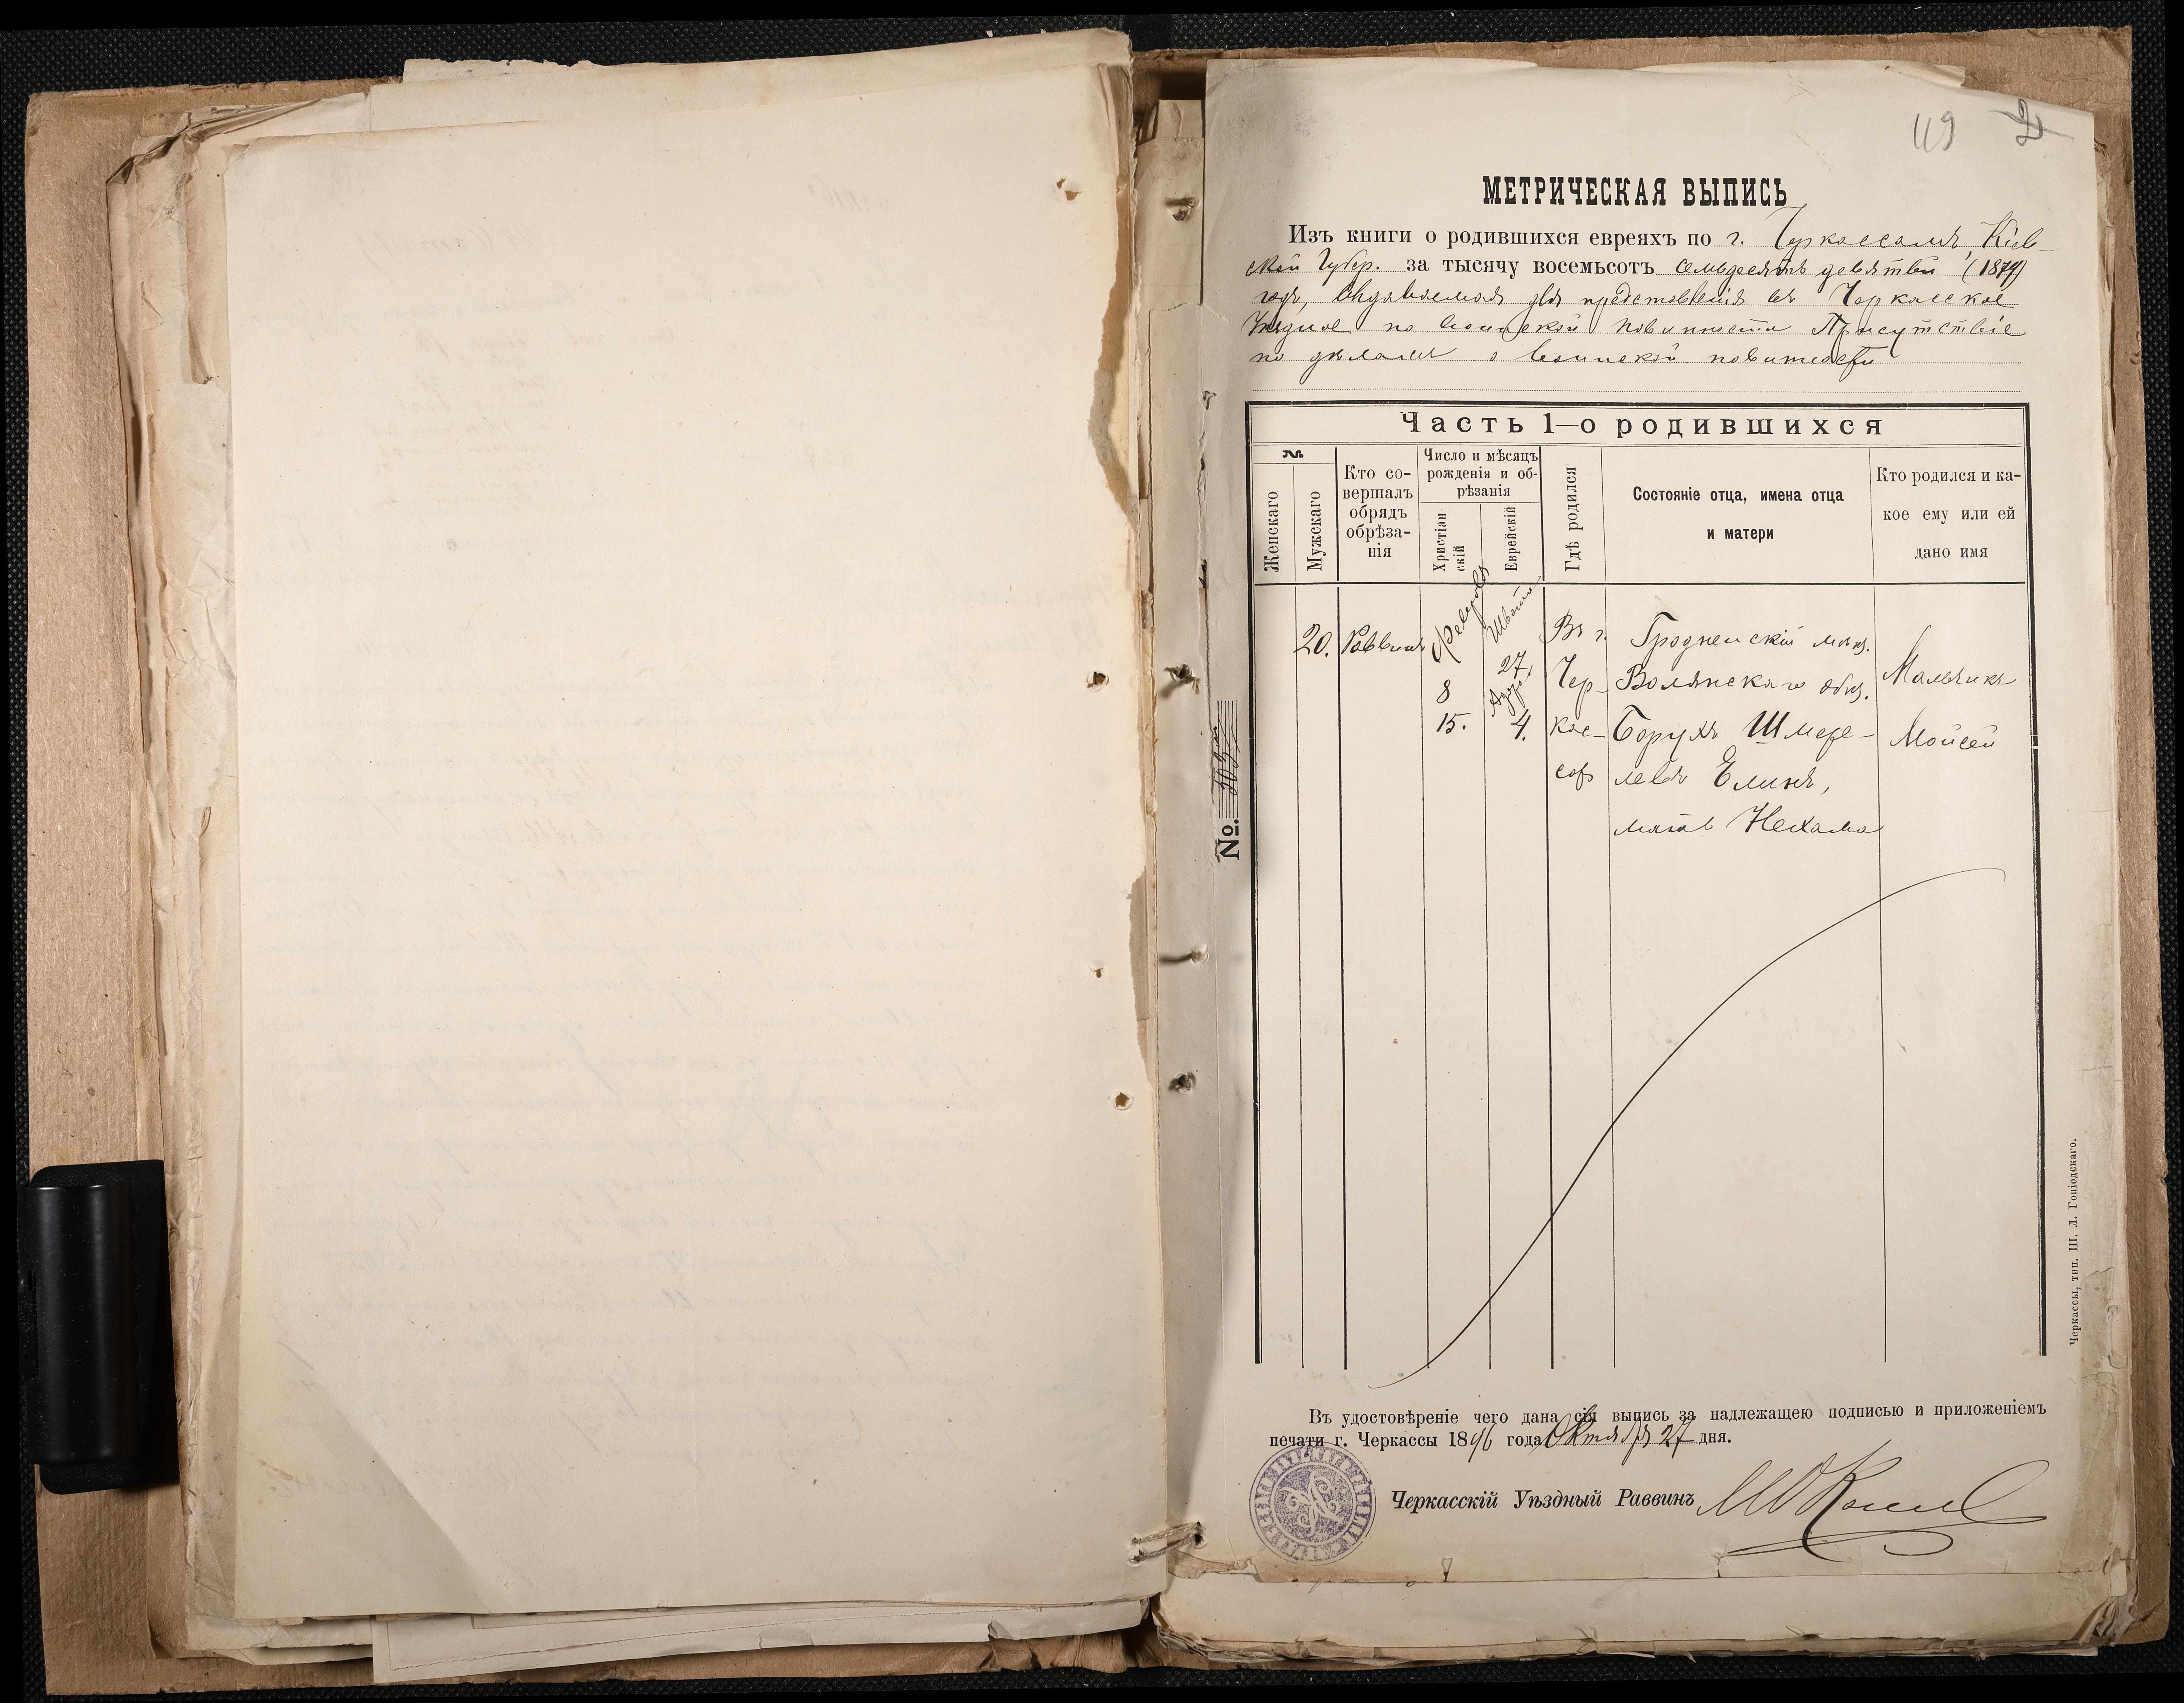 49 2
МЕТРИЧЕСКАЯ ВЫПИСЬ
Изъ книги о родившихся евреяхъ по г. Черкассамъ, Кіев-
ской Губер. за тысячу восемьсотъ семьдесятъ девятый (1879)
годъ, выдаваемая для представленія въ Черкасское
Уѣздное по воинской повинности Присутствіе
по дѣламъ о воинской повинности
Часть 1—о родившихся
№
Женскаго
Мужскаго
Кто со-
вершалъ
обрядъ
обрѣза-
нія
Число и мѣсяцъ
рожденія и об-
рѣзанія
Христіан-
скій
Еврейскій
Гдѣ родился
Состояніе отца, имена отца
и матери
Кто родился и ка-
кое ему или ей
дано имя
20.
Раввинъ
Февраля
8
15.
Шватъ
27,
Адаръ
4.
Въ г.
Чер-
кас-
сахъ
Гродненскій мѣщ.
Волянскаго общ.
Борухъ Шмере-
левъ Елинъ,
мать Нехама
Мальчикъ
Мойсей
No. 503
Въ удостовѣреніе чего дана сія выпись за надлежащею подписью и приложеніемъ
печати г. Черкассы 1896 года Октября 27 дня.
Черкасскій Уѣздный Раввинъ
Черкассы, тип. Ш. Л. Гоніодскаго.